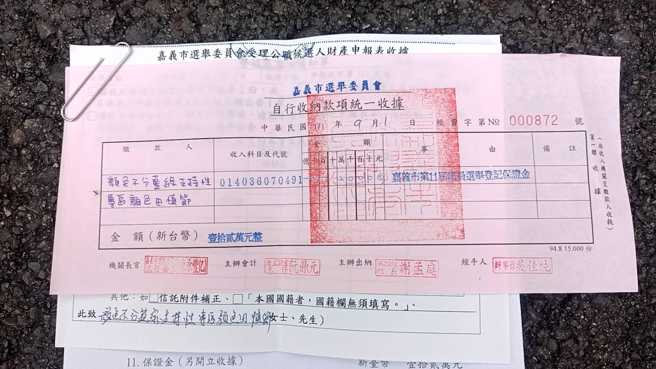 嘉義市選舉委員會受理公職候選人財產申報表收據
嘉義市選舉委員會
自行收納款項統一收據
中華民國 111 年 9 月 1 日 字第 No 000872 號
繳款人 收入科目及代號 金額 事由 備註
顏色不分藍綠支持性 014036070491 嘉義市第11屆 選舉登記保證金
專區顏色田慎節
金額(新台幣) 壹拾貳萬元整
94.8 15,000 份
機關長官 主辦會計 主辦出納 謝孟庭 經手人
其他:如□信託附件補正、□「本國國籍者,國籍欄無須填寫。」
此致 顏色不分藍綠支持性專區顏色田慎節 女士、先生)
11. 保證金(另開立收據) 新臺幣 壹拾貳萬元